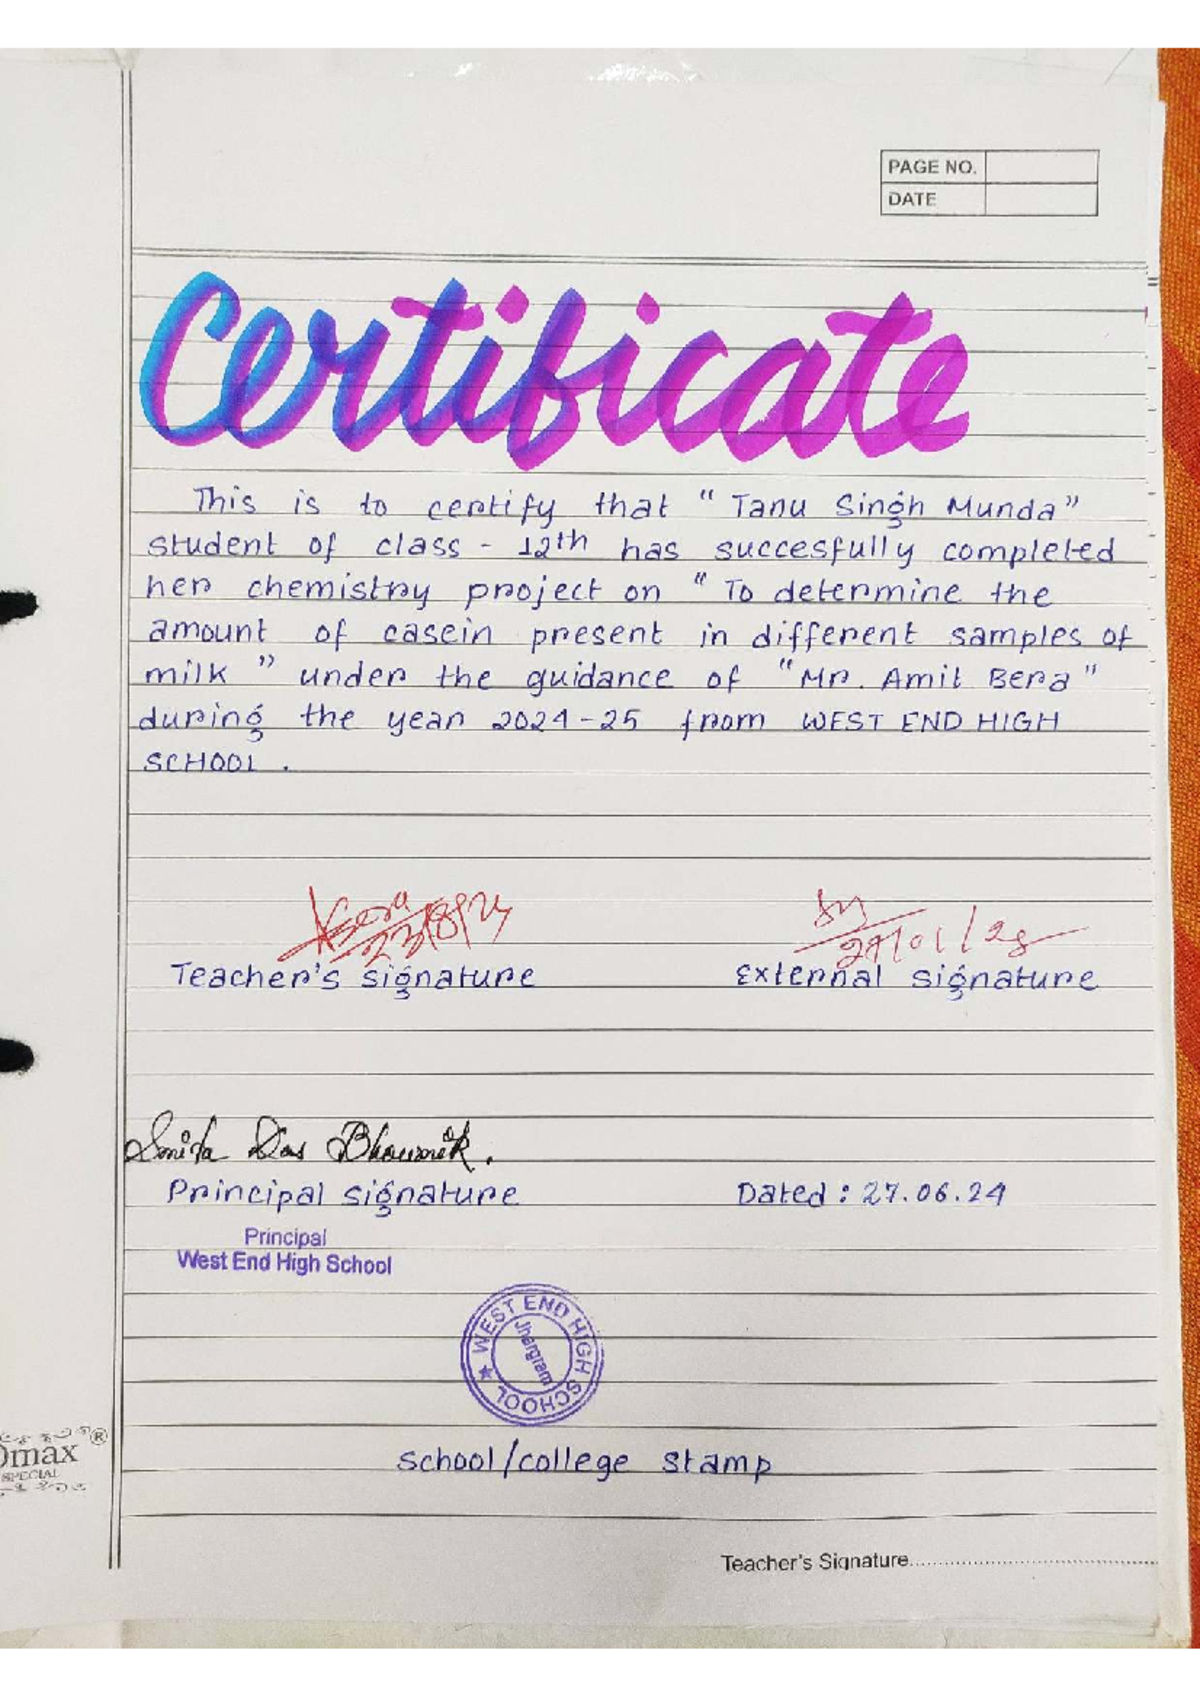 PAGE NO.
DATE
Certificate
This is to certify that “Tanu Singh Munda”
student of class - 12th has succesfully completed
her chemistry project on “To determine the
amount of casein present in different samples of
milk” under the guidance of “Mr. Amit Bera”
during the year 2024-25 from WEST END HIGH
SCHOOL.
ABera
23/8/24
Teacher's signature
External signature
Smita Das Bhowmik.
Principal signature
Dated : 27.06.24
Principal
West End High School
WEST END HIGH SCHOOL
Jhargram
School/college stamp
max ®
SPECIAL
Teacher's Signature